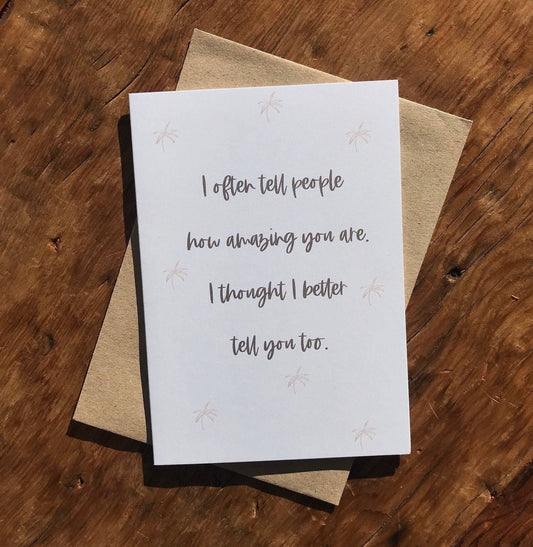 I often tell people
how amazing you are.
I thought I better
tell you too.